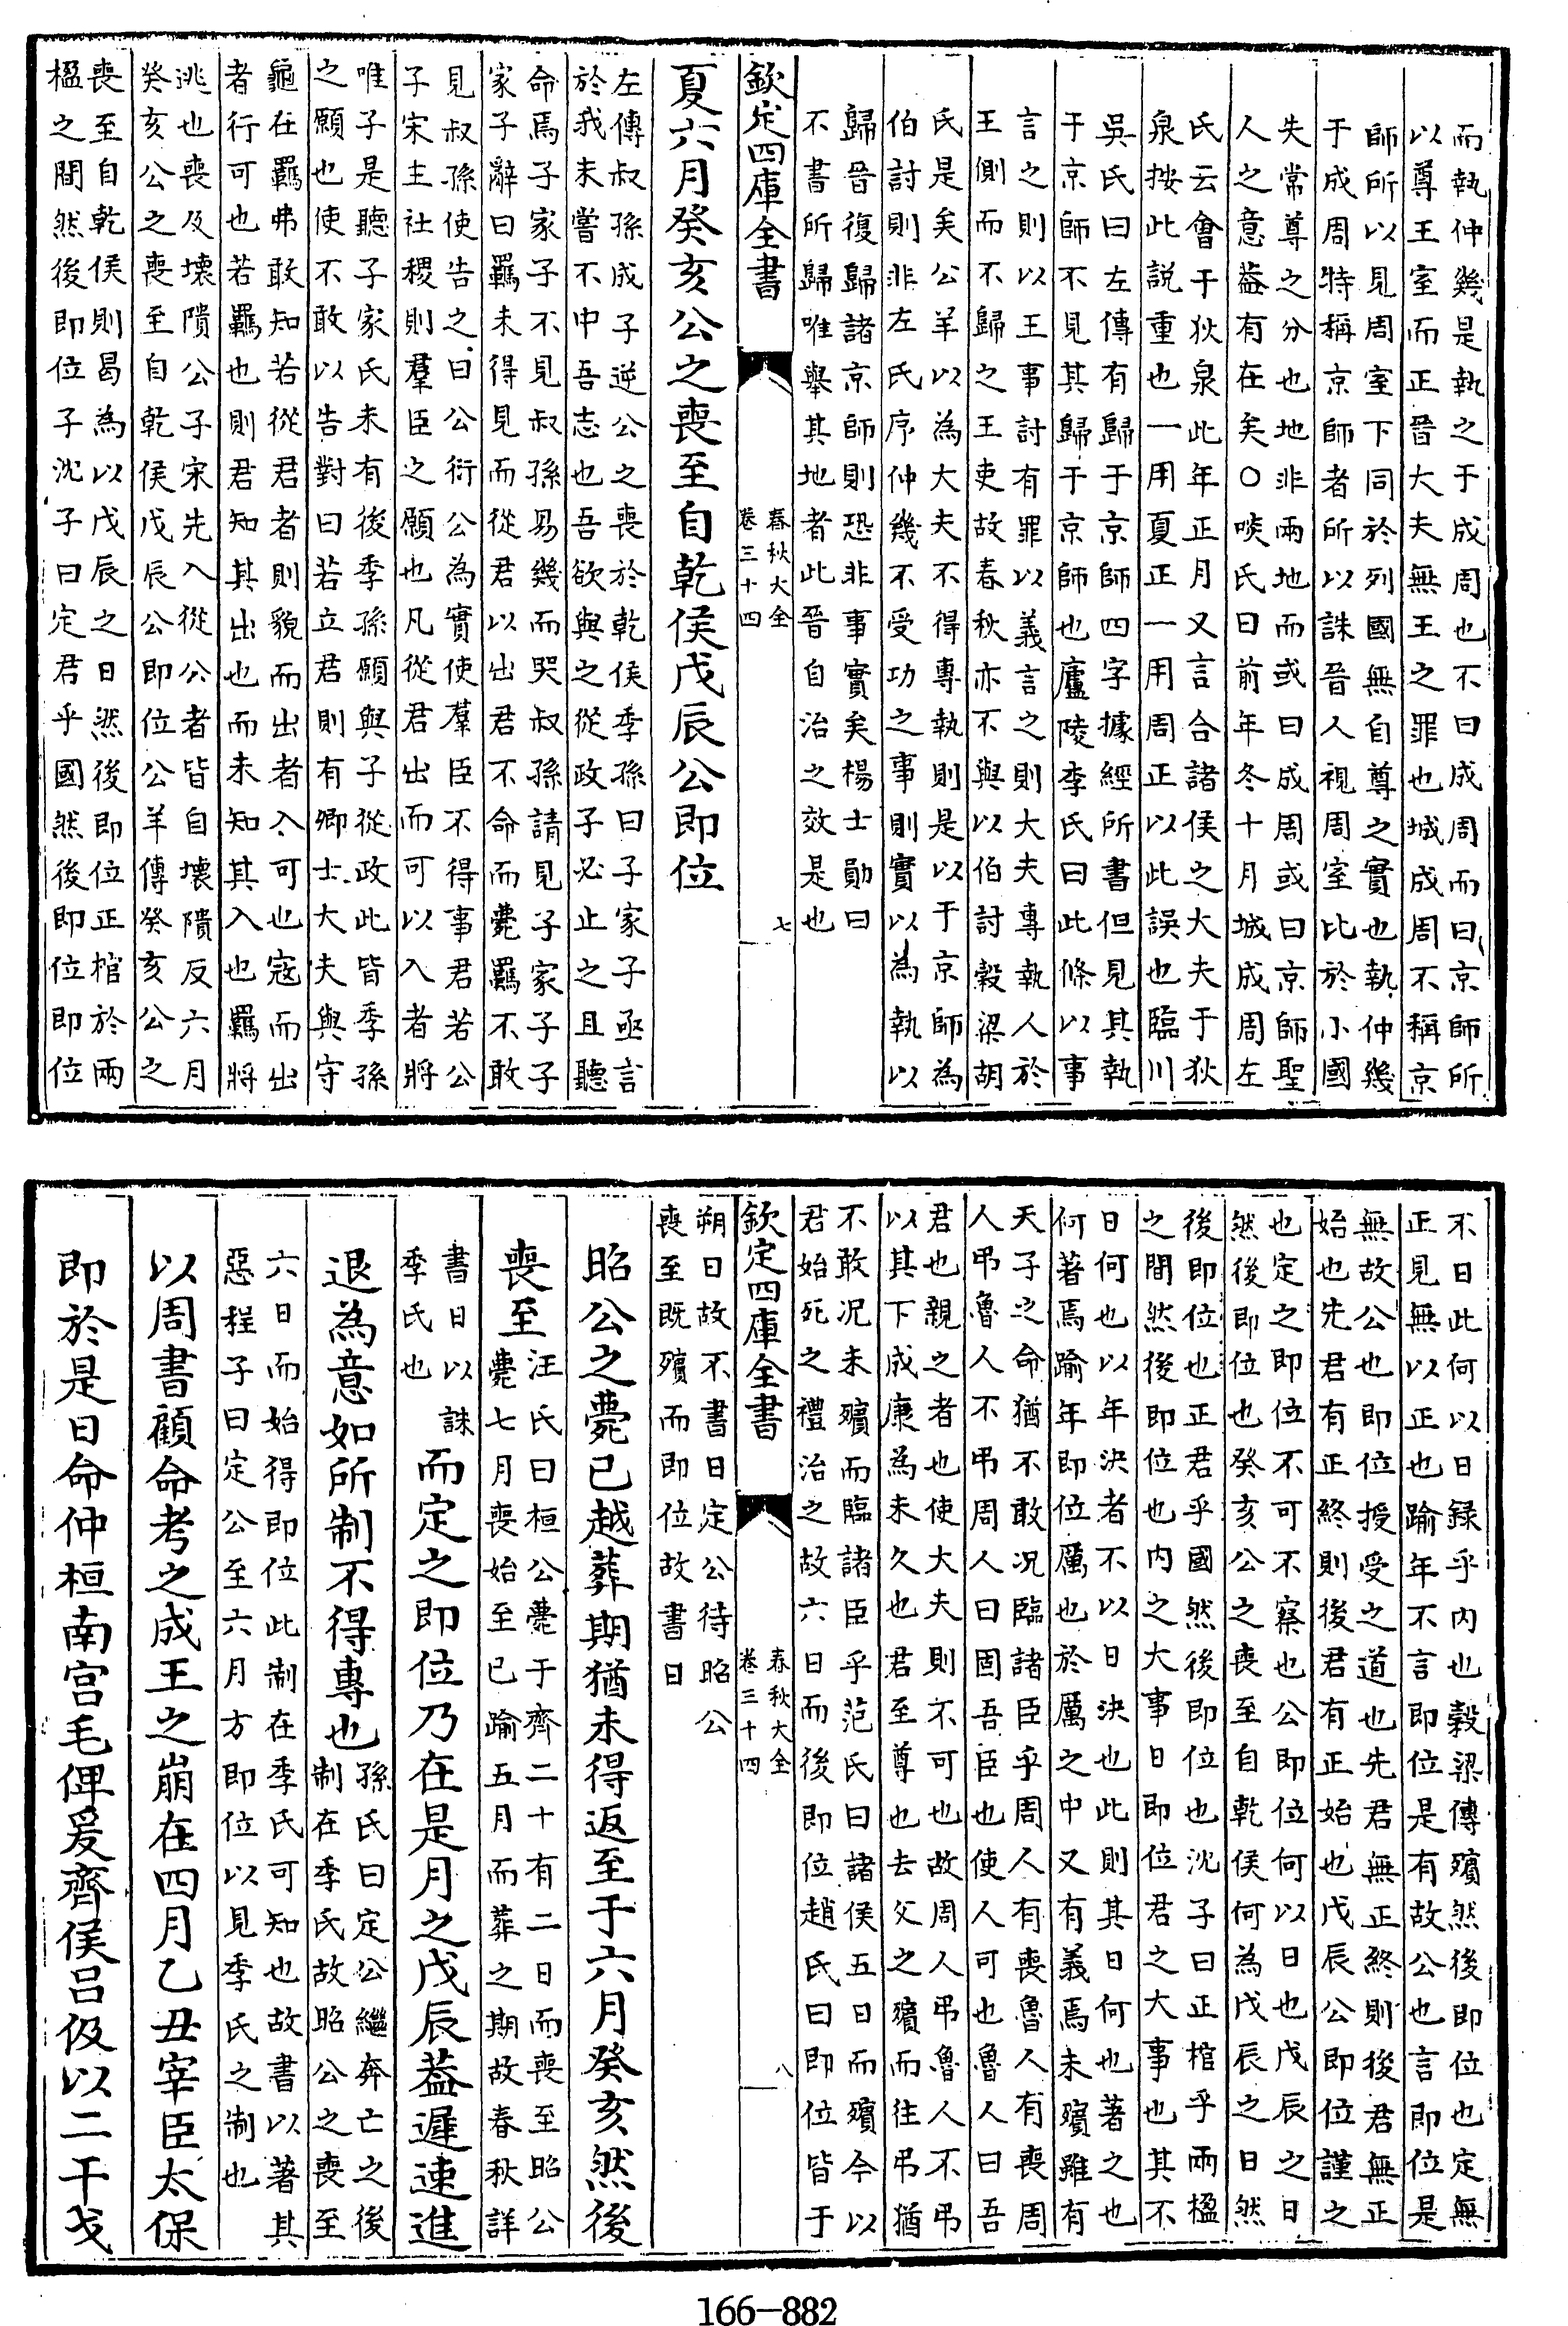 而執仲幾是執之于成周也不曰成周而曰京師所
以尊王室而正晉大夫無王之罪也城成周不稱京
師所以見周室下同於列國無自尊之實也執仲幾
于成周特稱京師者所以誅晉人視周室比於小國
失常尊之分也地非兩地而或曰成周或曰京師聖
人之意葢有在矣○啖氏曰前年冬十月城成周左
氏云會于狄泉此年正月又言合諸侯之大夫于狄
泉按此説重也一用夏正一用周正以此誤也臨川
吳氏曰左傳有歸于京師四字據經所書但見其執
于京師不見其歸于京師也廬陵李氏曰此條以事
言之則以王事討有罪以義言之則大夫專執人於
王側而不歸之王吏故春秋亦不與以伯討榖梁胡
氏是矣公羊以為大夫不得專執則是以于京師為
伯討則非左氏序仲幾不受功之事則實以為執以
歸晉復歸諸京師則恐非事實矣楊士勛曰
不書所歸唯舉其地者此晉自治之效是也
欽定四庫全書
春秋大全
卷三十四
七
夏六月癸亥公之喪至自乾侯戊辰公即位
左傳叔孫成子逆公之喪於乾侯季孫曰子家子亟言
於我未嘗不中吾志也吾欲與之從政子必止之且聽
命焉子家子不見叔孫易幾而哭叔孫請見子家子子
家子辭曰羈未得見而從君以出君不命而薨羈不敢
見叔孫使告之曰公衍公為實使羣臣不得事君若公
子宋主社稷則羣臣之願也凡從君出而可以入者將
唯子是聽子家氏未有後季孫願與子從政此皆季孫
之願也使不敢以告對曰若立君則有卿士大夫與守
龜在羈弗敢知若從君者則貌而出者入可也寇而出
者行可也若羈也則君知其出也而未知其入也羈將
逃也喪及壞隤公子宋先入從公者皆自壞隤反六月
癸亥公之喪至自乾侯戊辰公即位公羊傳癸亥公之
喪至自乾侯則曷為以戊辰之日然後即位正棺於兩
楹之間然後即位子沈子曰定君乎國然後即位即位
不日此何以日録乎内也榖梁傳殯然後即位也定無
正見無以正也踰年不言即位是有故公也言即位是
無故公也即位授受之道也先君無正終則後君無正
始也先君有正終則後君有正始也戊辰公即位謹之
也定之即位不可不察也公即位何以日也戊辰之日
然後即位也癸亥公之喪至自乾侯何為戊辰之日然
後即位也正君乎國然後即位也沈子曰正棺乎兩楹
之間然後即位也内之大事日即位君之大事也其不
日何也以年決者不以日決也此則其日何也著之也
何著焉踰年即位厲也於厲之中又有義焉未殯雖有
天子之命猶不敢况臨諸臣乎周人有喪魯人有喪周
人弔魯人不弔周人曰固吾臣也使人可也魯人曰吾
君也親之者也使大夫則不可也故周人弔魯人不弔
以其下成康為未久也君至尊也去父之殯而往弔猶
不敢况未殯而臨諸臣乎范氏曰諸侯五日而殯今以
君始死之禮治之故六日而後即位趙氏曰即位皆于
欽定四庫全書
春秋大全
卷三十四
八
朔日故不書日定公待昭公
喪至既殯而即位故書日
昭公之薨已越葬期猶未得返至于六月癸亥然後
喪至汪氏曰桓公薨于齊二十有二日而喪至昭公
薨七月喪始至已踰五月而葬之期故春秋詳
書日以誅
季氏也而定之即位乃在是月之戊辰葢遲速進
退為意如所制不得專也孫氏曰定公繼奔亡之後
制在季氏故昭公之喪至
六日而始得即位此制在季氏可知也故書以著其
惡程子曰定公至六月方即位以見季氏之制也
以周書顧命考之成王之崩在四月乙丑宰臣太保
即於是日命仲桓南宫毛俾爰齊侯吕伋以二干戈
166-882